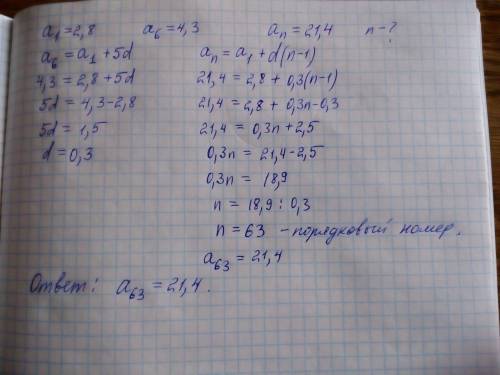 a₁=2,8 a₆=4,3 aₙ=21,4 n-?
a₆=a₁+5d
4,3=2,8+5d
5d=4,3-2,8
5d=1,5
d=0,3
aₙ=a₁+d(n-1)
21,4=2,8+0,3(n-1)
21,4=2,8+0,3n-0,3
21,4=0,3n+2,5
0,3n=21,4-2,5
0,3n=18,9
n=18,9:0,3
n=63 -порядковый номер.
a₆₃=21,4
Ответ: a₆₃=21,4.